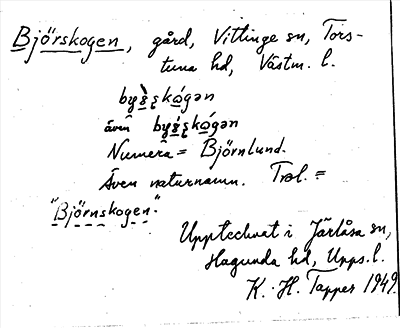 Björskogen, gård, Vittinge sn, Tors-
tuna hd, Västm. l.
även
Numera = Björnlund.
Även naturnamn. Trol. =
"Björnskogen".
Upptecknat i Järlåsa sn,
Hagunda hd, Upps. l.
K. H. Tapper 1949.